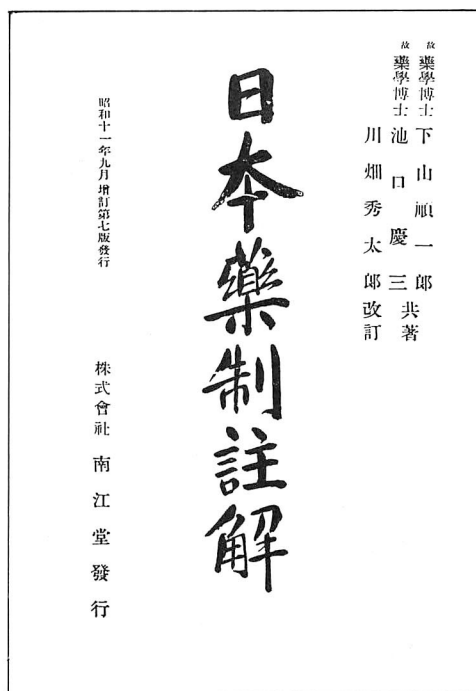 故 藥學博士 下山順一郎
故 藥學博士 池口慶三 共著
川畑秀太郎 改訂
日本藥制註解
昭和十一年九月增訂第七版發行
株式會社 南江堂發行